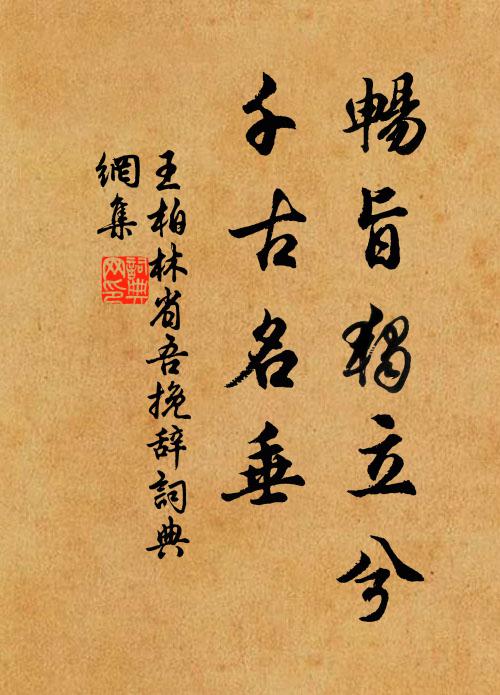 暢旨獨立兮
千古名垂
王柏林省吾挽辞詞典
網集
詞典
网印